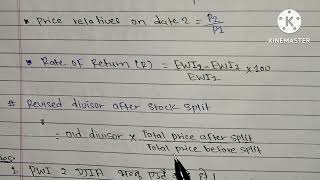 * Price relatives on date 2 = P2
P1
KINEMASTER
* Rate of Return (R) = EWI2 - EWI1 × 100
EWI1
# Revised divisor after stock split
= old divisor × Total price after split
Total price before split
1. PWI 2 DJIA